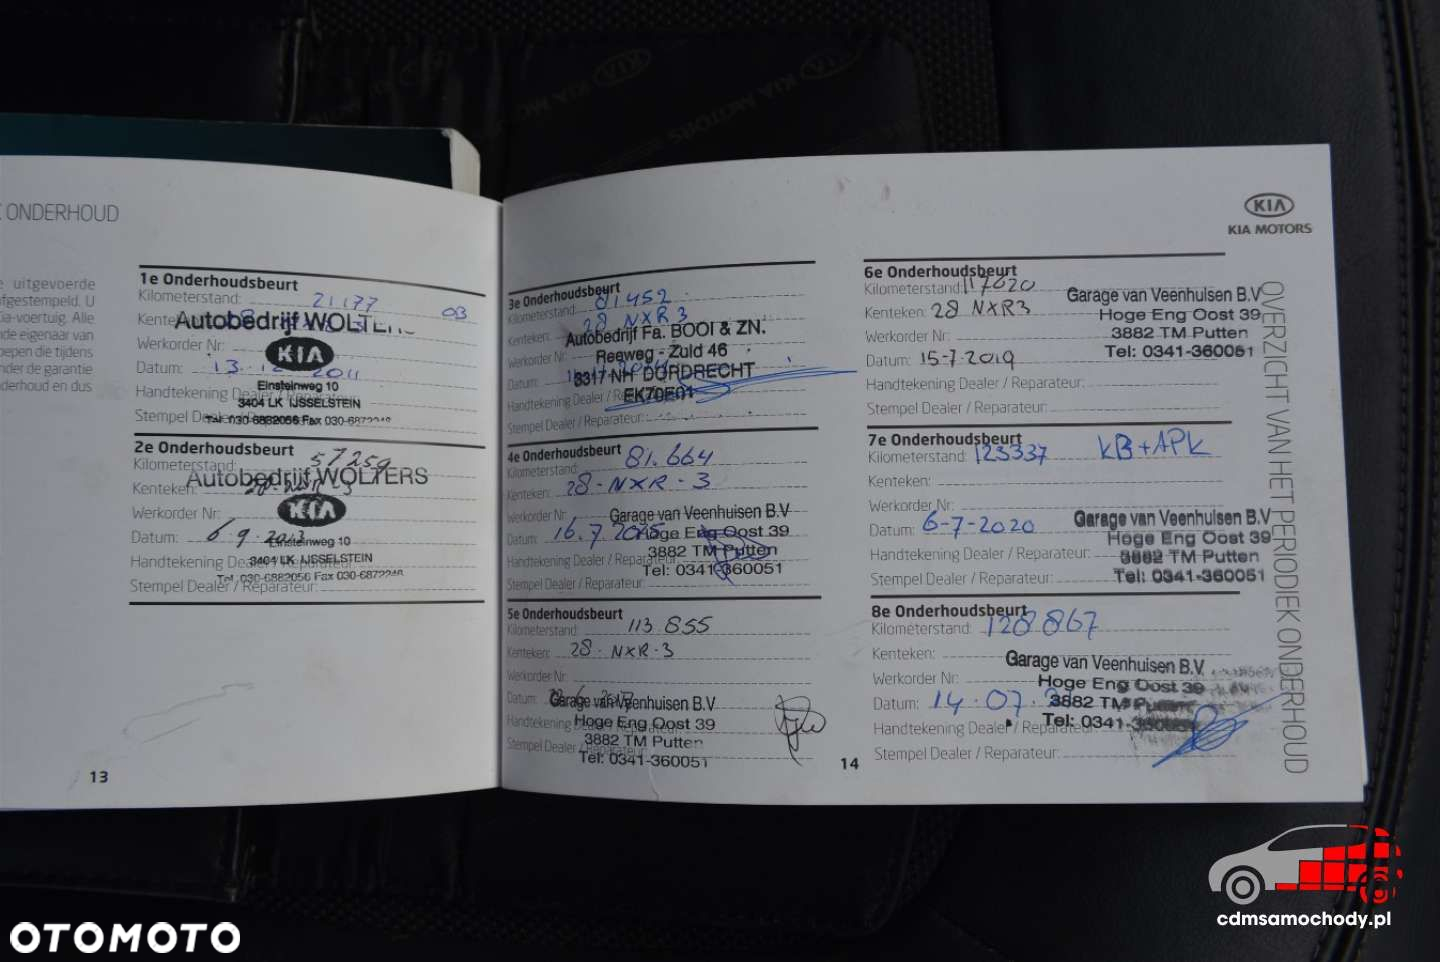 ONDERHOUD
e uitgevoerde
afgestempeld. U
ia-voertuig. Alle
nde eigenaar van
oepen die tijdens
nder de garantie
derhoud en dus
1e Onderhoudsbeurt
Kilometerstand: 21.177
OB
Autobedrijf WOLTERS
Werkorder Nr:
KIA
Datum: 13.
2011
Einsteinweg 10
Handtekening Dealer / Reparateur:
3404 LK IJSSELSTEIN
Stempel Dealer / Reparateur:
Tel. 030-6882056 Fax 030-6872248
2e Onderhoudsbeurt
Kilometerstand: 57259
Autobedrijf WOLTERS
Kenteken: 28-NXR-3
Werkorder Nr:
KIA
Datum: 6.9.2013
Einsteinweg 10
3404 LK IJSSELSTEIN
Handtekening Dealer / Reparateur:
Tel. 030-6882056 Fax 030-6872248
Stempel Dealer / Reparateur:
13
3e Onderhoudsbeurt
Kilometerstand:
Kenteken: 28 NXR 3
Autobedrijf Fa. BOOI & ZN.
Werkorder Nr:
Reeweg - Zuid 46
Datum:
3317 NH DORDRECHT
Handtekening Dealer / Reparateur:
EK70E01
Stempel Dealer / Reparateur:
4e Onderhoudsbeurt
Kilometerstand: 81.664
Kenteken: 28-NXR-3
Werkorder Nr:
Garage van Veenhuisen B.V
Datum: 16.7.2015
Hoge Eng Oost 39
3882 TM Putten
Handtekening Dealer / Reparateur:
Tel: 0341-360051
Stempel Dealer / Reparateur:
5e Onderhoudsbeurt
Kilometerstand: 113.855
Kenteken: 28-NXR-3
Werkorder Nr:
Datum:
Garage van Veenhuisen B.V
Handtekening Dealer / Reparateur:
Hoge Eng Oost 39
3882 TM Putten
Stempel Dealer / Reparateur:
Tel: 0341-360051
14
KIA
KIA MOTORS
6e Onderhoudsbeurt
Kilometerstand: 117020
Garage van Veenhuisen B.V
Kenteken: 28 NXR3
Hoge Eng Oost 39
Werkorder Nr:
3882 TM Putten
Datum: 15-7-2019
Tel: 0341-360051
Handtekening Dealer / Reparateur:
Stempel Dealer / Reparateur:
7e Onderhoudsbeurt
Kilometerstand: 123337 KB+APK
Kenteken:
Werkorder Nr:
Garage van Veenhuisen B.V
Datum: 6-7-2020
Hoge Eng Oost 39
Handtekening Dealer / Reparateur:
3882 TM Putten
Stempel Dealer / Reparateur:
Tel: 0341-360051
8e Onderhoudsbeurt
Kilometerstand: 128867
Kenteken:
Garage van Veenhuisen B.V
Werkorder Nr:
Hoge Eng Oost 39
Datum: 14.07.
3882 TM Putten
Handtekening Dealer / Reparateur:
Tel: 0341-360051
Stempel Dealer / Reparateur:
OVERZICHT VAN HET PERIODIEK ONDERHOUD
cdmsamochody.pl
OTOMOTO